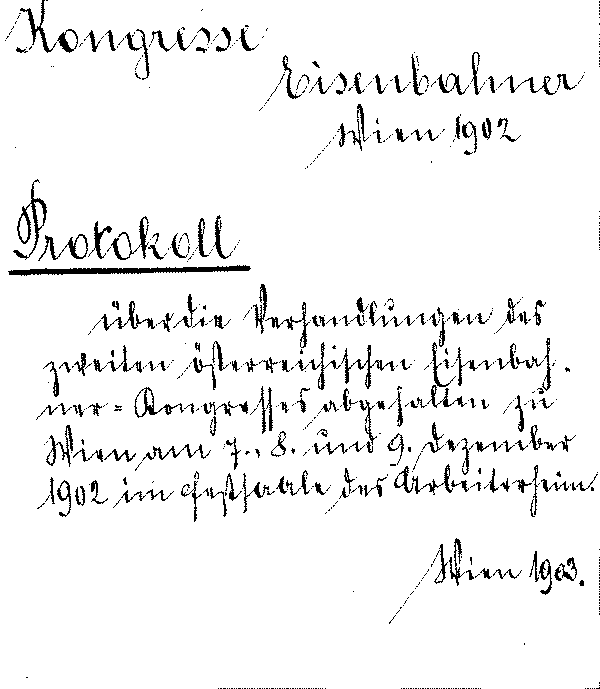 Kongresse
Eisenbahner
Wien 1902
Protokoll
über die Verhandlungen des
zweiten österreichischen Eisenbah-
ner-Kongresses abgehalten zu
Wien am 7., 8. und 9. Dezember
1902 im Festsaale des Arbeiterheim.
Wien 1903.